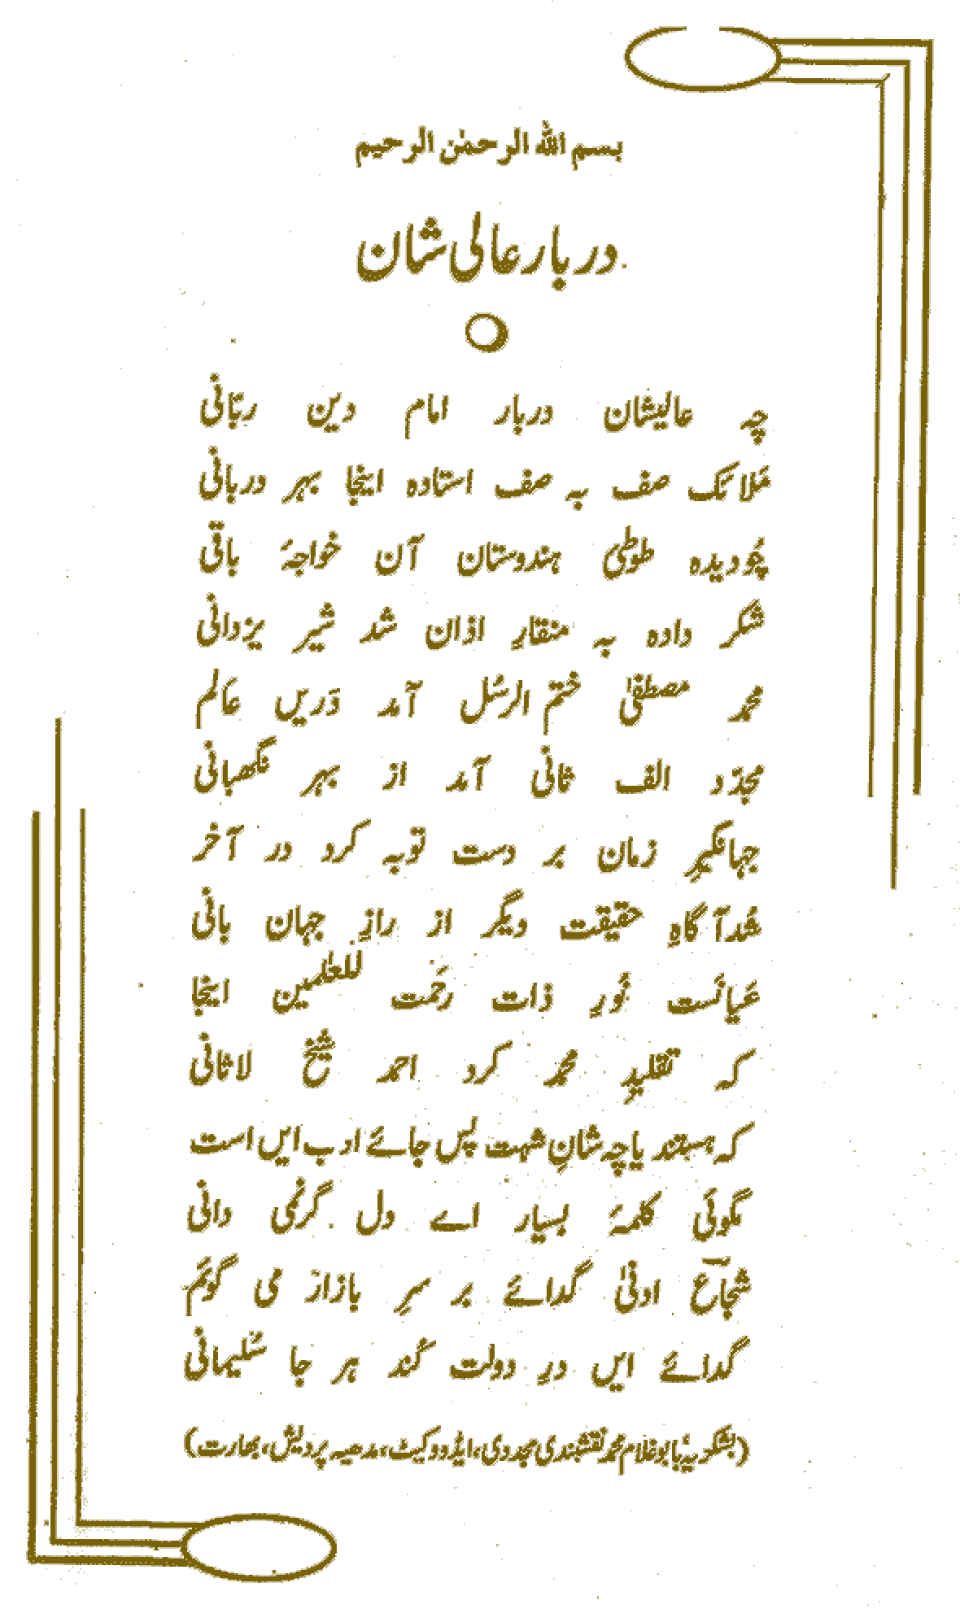 بسم اللہ الرحمٰن الرحیم
دربار عالی شان
چہ عالیشان دربار امام دین ربّانی
مَلائک صف بہ صف استادہ اینجا بہر دربانی
چُو دیدہ طوطیٔ ہندوستان آن خواجۂ باقی
شکر دادہ بہ منقارِ اذان شد شیر یزدانی
محمد مصطفیٰ ختم الرسُل آمد دَریں عَالم
مجدّد الف ثانی آمد از بہر نگھبانی
جہانگیرِ زمان بر دست توبہ کرد در آخر
شُد آگاہِ حقیقت دیگر از رازِ جہان بانی
عَیانَست نُورِ ذات رحَمت للعٰلمین اینجا
کہ تقلیدِ محمد کرد احمد شیخ لاثانی
کہ ہستند یاچہ شانِ شہت پس جائے ادب ایں است
نگوئی کلمۂ بسیار اے دل گرنمی دانی
شجاؔع ادنیٰ گدائے بر سرِ بازار می گویَم
گدائے ایں درِ دولت کُند ہر جا سُلیمانی
(بشکریۂ بابو غلام محمد نقشبندی مجددی، ایڈووکیٹ، مدھیہ پردیش، بھارت)